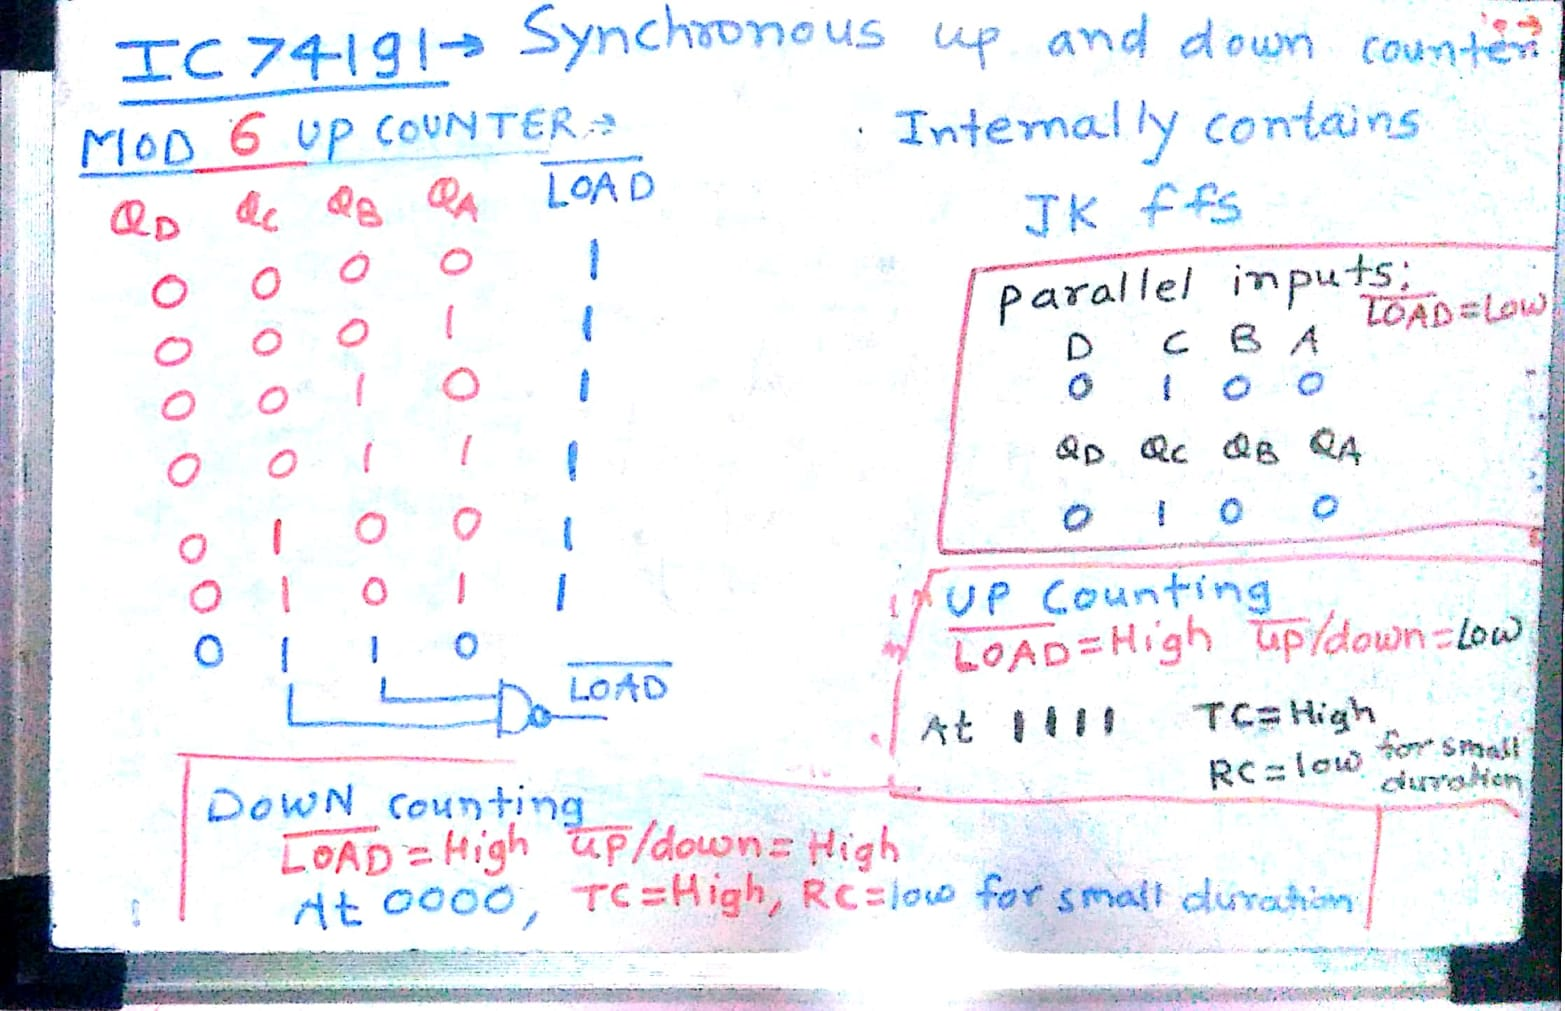 IC 74191→ Synchronous up and down counter
MOD 6 UP COUNTER→
Internally contains
JK ffs
QD QC QB QA L̅O̅A̅D̅
0 0 0 0 1
0 0 0 1 1
0 0 1 0 1
0 0 1 1 1
0 1 0 0 1
0 1 0 1 1
0 1 1 0
L̅O̅A̅D̅
parallel inputs;
L̅O̅A̅D̅=Low
D C B A
0 1 0 0
QD QC QB QA
0 1 0 0
UP Counting
L̅O̅A̅D̅=High u̅p̅/down=Low
At 1111 TC=High
RC=low for small
duration
DOWN counting
L̅O̅A̅D̅=High u̅p̅/down=High
At 0000, TC=High, RC=low for small duration